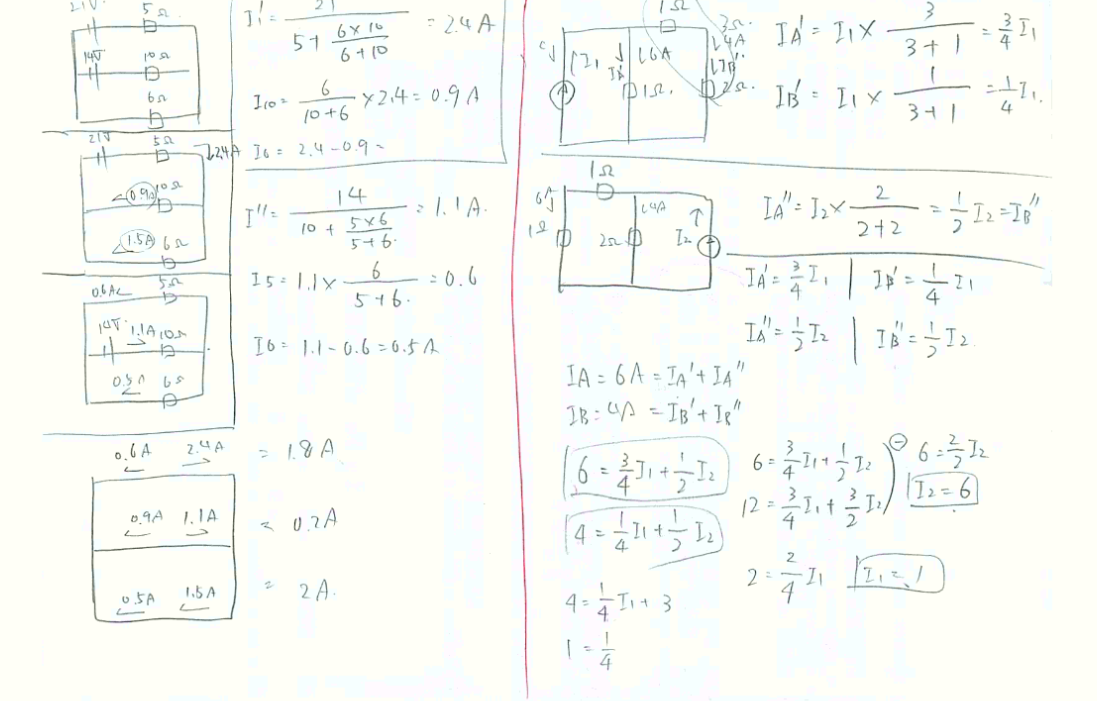 21V 5Ω
14V 10Ω
6Ω
I' = 21 / (5 + (6×10)/(6+10)) = 2.4A
I10 = 6/(10+6) × 2.4 = 0.9A
I6 = 2.4 - 0.9 =
21V 5Ω 2.4A
0.9A 10Ω
1.5A 6Ω
I'' = 14 / (10 + (5×6)/(5+6)) = 1.1A.
I5 = 1.1 × 6/(5+6) = 0.6
I6 = 1.1 - 0.6 = 0.5A
0.6A 5Ω
14V 1.1A 10Ω
0.5A 6Ω
0.6A 2.4A = 1.8A
0.9A 1.1A = 0.2A
0.5A 1.5A = 2A.
1Ω 3Ω
I1 6A 4A
IB''
1Ω. 2Ω.
IA' = I1 × 3/(3+1) = 3/4 I1
IB' = I1 × 1/(3+1) = 1/4 I1.
1Ω
1Ω 2Ω 4A I2
IA'' = I2 × 2/(2+2) = 1/2 I2 = IB''
IA' = 3/4 I1 | IB' = 1/4 I1
IA'' = 1/2 I2 | IB'' = 1/2 I2
IA = 6A = IA' + IA''
IB = 4A = IB' + IB''
6 = 3/4 I1 + 1/2 I2
4 = 1/4 I1 + 1/2 I2
6 = 3/4 I1 + 1/2 I2
12 = 3/4 I1 + 3/2 I2
6 = 2/2 I2
I2 = 6
2 = 2/4 I1 I1 = 1
4 = 1/4 I1 + 3
1 = 1/4